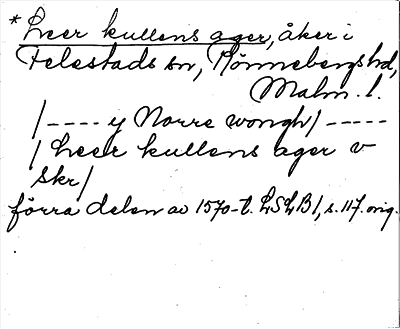 * Leer kullens ager, åker i
Felestads sn, Rönnebergs hd,
Malm. l.
/---- y Norre wongh/-----
/ Leer kullens ager v
skr/
förra delen av 1570-t. LSLB 1, s. 117. orig.